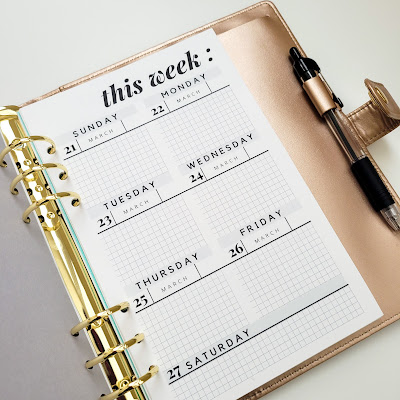 this week :
SUNDAY
21 MARCH
MONDAY
22 MARCH
TUESDAY
23 MARCH
WEDNESDAY
24 MARCH
THURSDAY
25 MARCH
FRIDAY
26 MARCH
27 SATURDAY